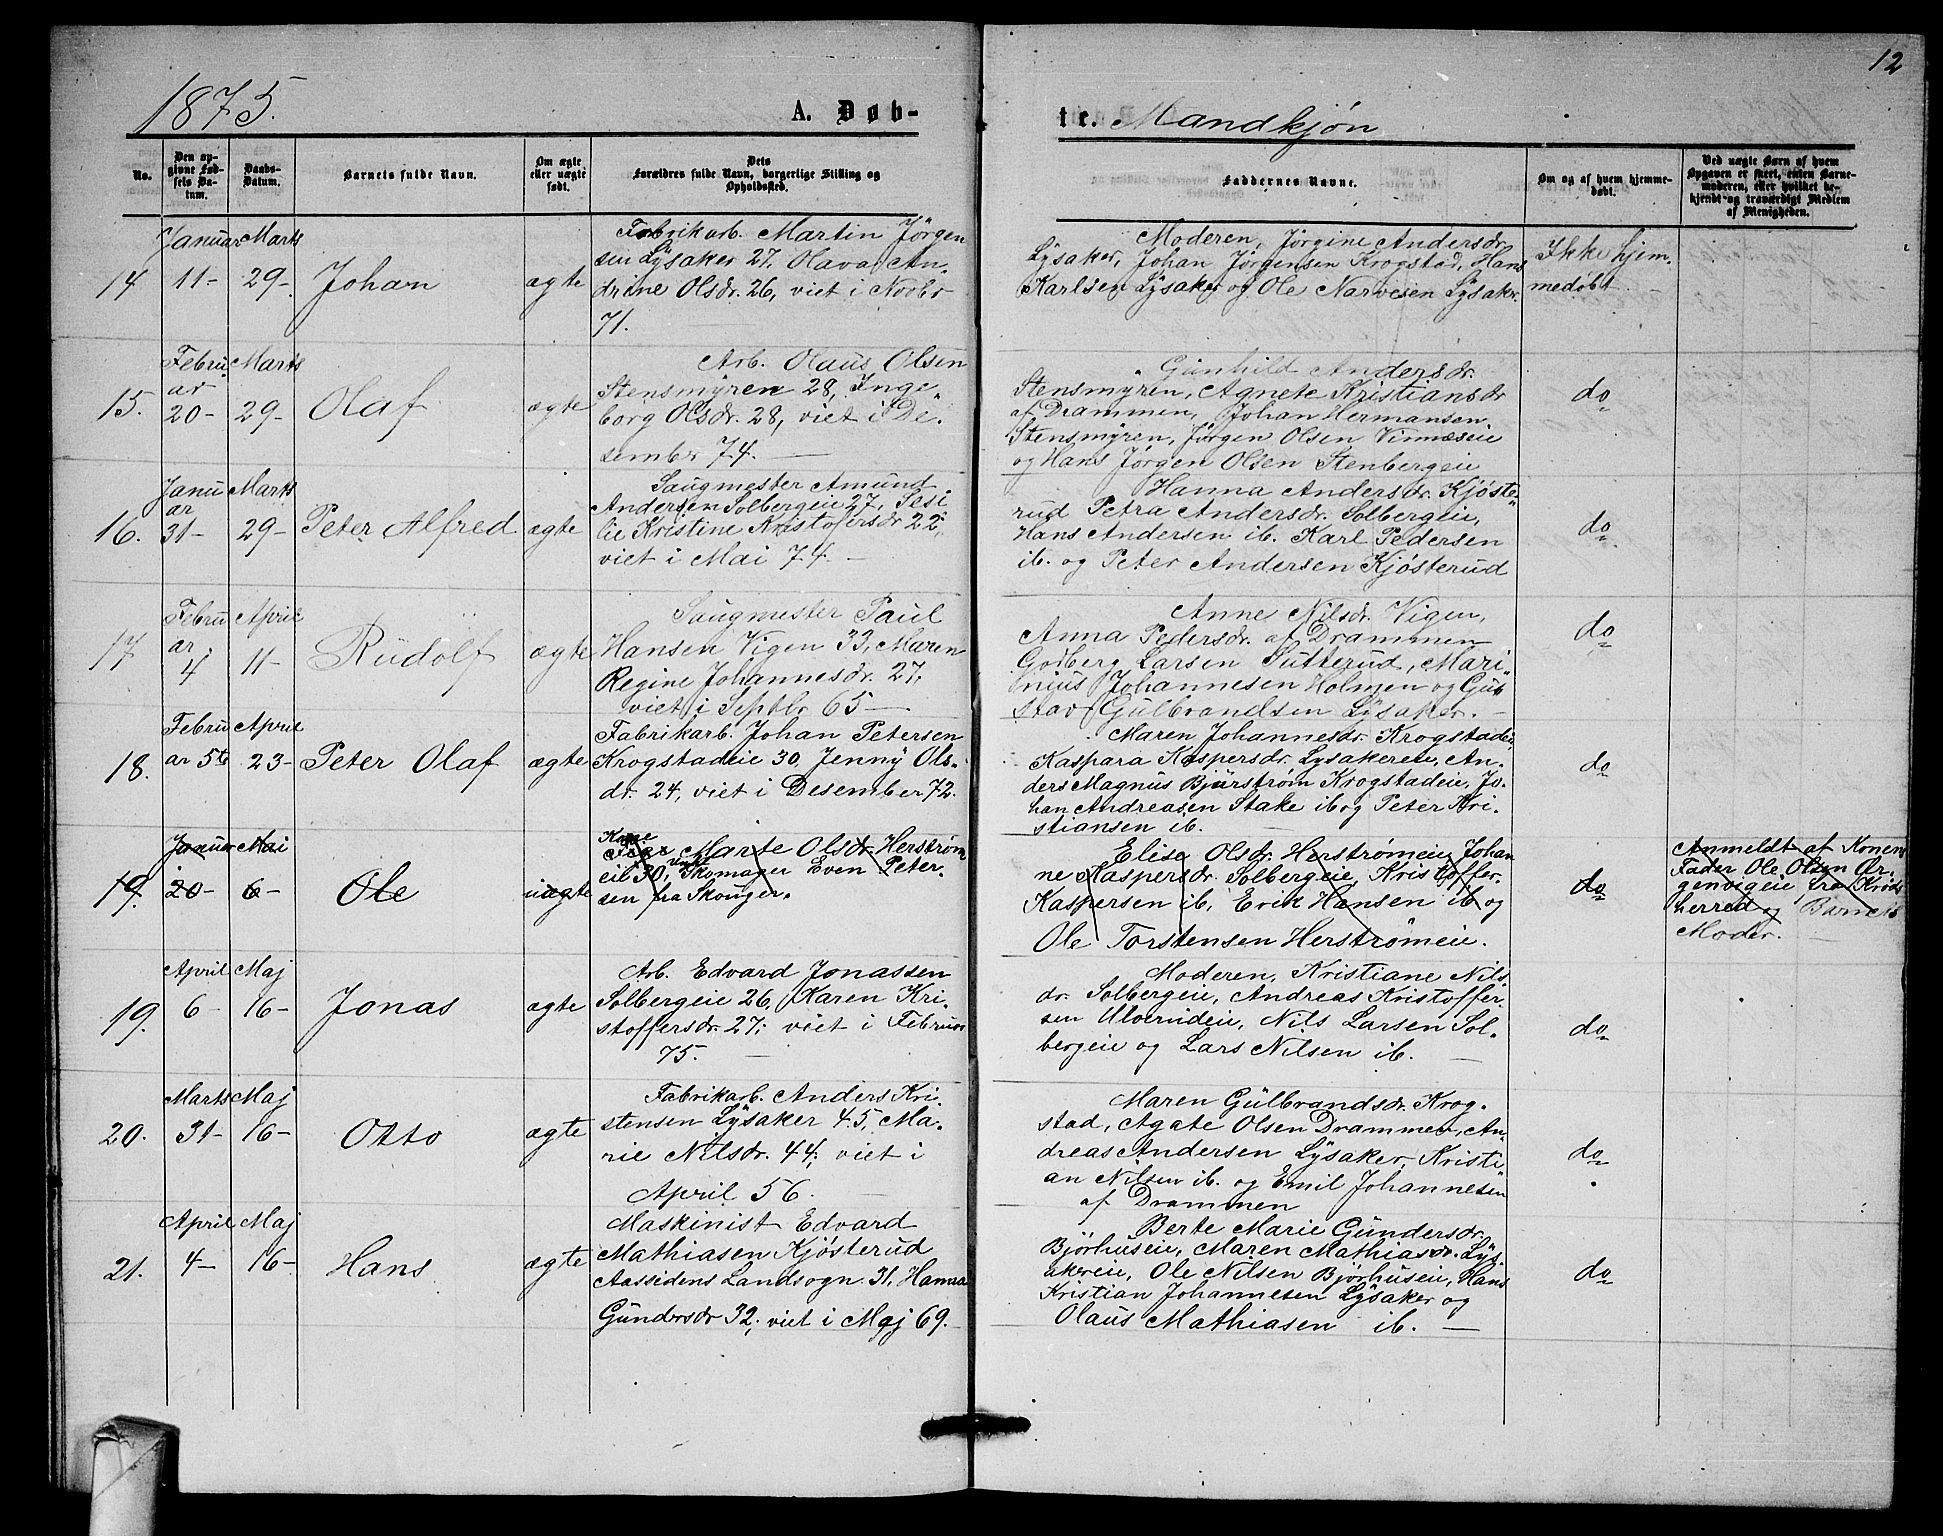 12
1875.
A. Døb-
te. Mandkjøn
No.
Den op-
givne Fød-
sels Da-
tum.
Daabs-
Datum.
Barnets fulde Navn.
Om ægte
eller uægte
født.
Dets
Forældres fulde Navn, borgerlige Stilling og
Opholdssted.
Faddernes Navne.
Om og af hvem hjemme-
døbt.
Ved uægte Børn af hvem
Opgaven er skeet, enten Barne-
moderen, eller hvilket be-
kjendt og troværdigt Medlem
af Menigheden.
14
Januar
11-
Marts
29-
Johan
ægte
Fabrikarb. Martin Jörgen
sen Lysaker 27. Olava An-
drine Olsdr. 26, viet i Novbr
71.
Moderen, Jörgine Andersdr.
Lysaker, Johan Jörgensen Krogstad, Hans
Karlsen Lysaker og Ole Narvesen Lysaker.
Ikke hjem-
medøbt.
15.
Febru
ar
20-
Marts
29-
Olaf
ægte
Arb. Olaus Olsen
Stensmyren 28, Inge-
borg Olsdr. 28, viet i De-
sember 74.
Gunhild Andersdr.
Stensmyren, Agnete Kristiansdr
af Drammen, Johan Hermansen
Stensmyren, Jörgen Olsen Vinnæseie
og Hans Jörgen Olsen Stenbergeie
do
16.
Janu
ar
31-
Marts
29-
Peter Alfred
ægte
Saugmester Amund
Andersen Solbergeie 27, Sesi
lie Kristine Kristofersdr 22,
viet i Mai 74.
Hanna Andersdr. Kjöste-
rud Petra Andersdr. Solbergeie,
Hans Andersen ib. Karl Pedersen
ib. og Peter Andersen Kjösterud
do
17
Febru
ar
4
April
11-
Rudolf
ægte
Saugmester Paul
Hansen Vigen 33, Maren
Regine Johannesdr. 27,
viet i Septbr 65
Anne Nilsdr. Vigen,
Anna Pedersdr. af Drammen
Godberg Larsen Sutterud, Mari-
nius Johannesen Holmen og Gus
stav Gulbrandsen Lysaker.
do
18.
Febru
ar 5te
April
23-
Peter Olaf
ægte
Fabrikarb. Johan Petersen
Krogstadeie 30, Jenny Ols-
dr. 24, viet i Desember 72.
Maren Johannesdr. Krogstadeie
Kaspara Kaspersdr. Lysakereie, An-
ders Magnus Bjürström Krogstadeie, Jo-
han Andreasen Stake ib og Peter Kri-
stiansen ib.
do
19.
Januar
20-
Mai
6-
Ole
uægte
Kone
Marte Olsdr. Herström
eie 30, Skomager Even Peter-
sen fra Skouger.
Elise Olsdr. Herströmeie, Johan
ne Kaspersdr. Solbergeie, Kristoffer
Kaspersen ib, Erik Hansen ib og
Ole Torstensen Herströmeie.
do
Anmeldt af Konens
Fader Ole Olsen Ør-
genvigeie fra Kröds
herred og Barnets
Moder.
19.
April
6-
Maj
16-
Jonas
ægte
Arb. Edvard Jonassen
Solbergeie 26, Karen Kri-
stoffersdr. 27; viet i Februar
75.
Moderen, Kristiane Nils-
dr. Solbergeie, Andreas Kristoffer
sen Ulverudeie, Nils Larsen Sol-
bergeie og Lars Nilsen ib.
do
20.
Marts
31-
Maj
16-
Otto
ægte
Fabrikarb. Anders Kri-
stensen Lysaker 45, Ma-
rie Nilsdr. 44; viet i
April 56.
Maren Gulbrandsdr. Krog-
stad, Agate Olsen Drammen, An-
dreas Andersen Lysaker, Kristi-
an Nilsen ib. og Emil Johannesen
af Drammen
do
21.
April
4-
Maj
16-
Hans
ægte
Maskinist Edvard
Mathiasen Kjösterud
Aassidens Landsogn 31, Hanna
Gundersdr 32; viet i Maj 69.
Berte Marie Gundersdr.
Björhuseie, Maren Mathiasdr. Lys-
akereie, Ole Nilsen Björhuseie, Hans
Kristian Johannesen Lysaker og
Olaus Mathiasen ib.
do